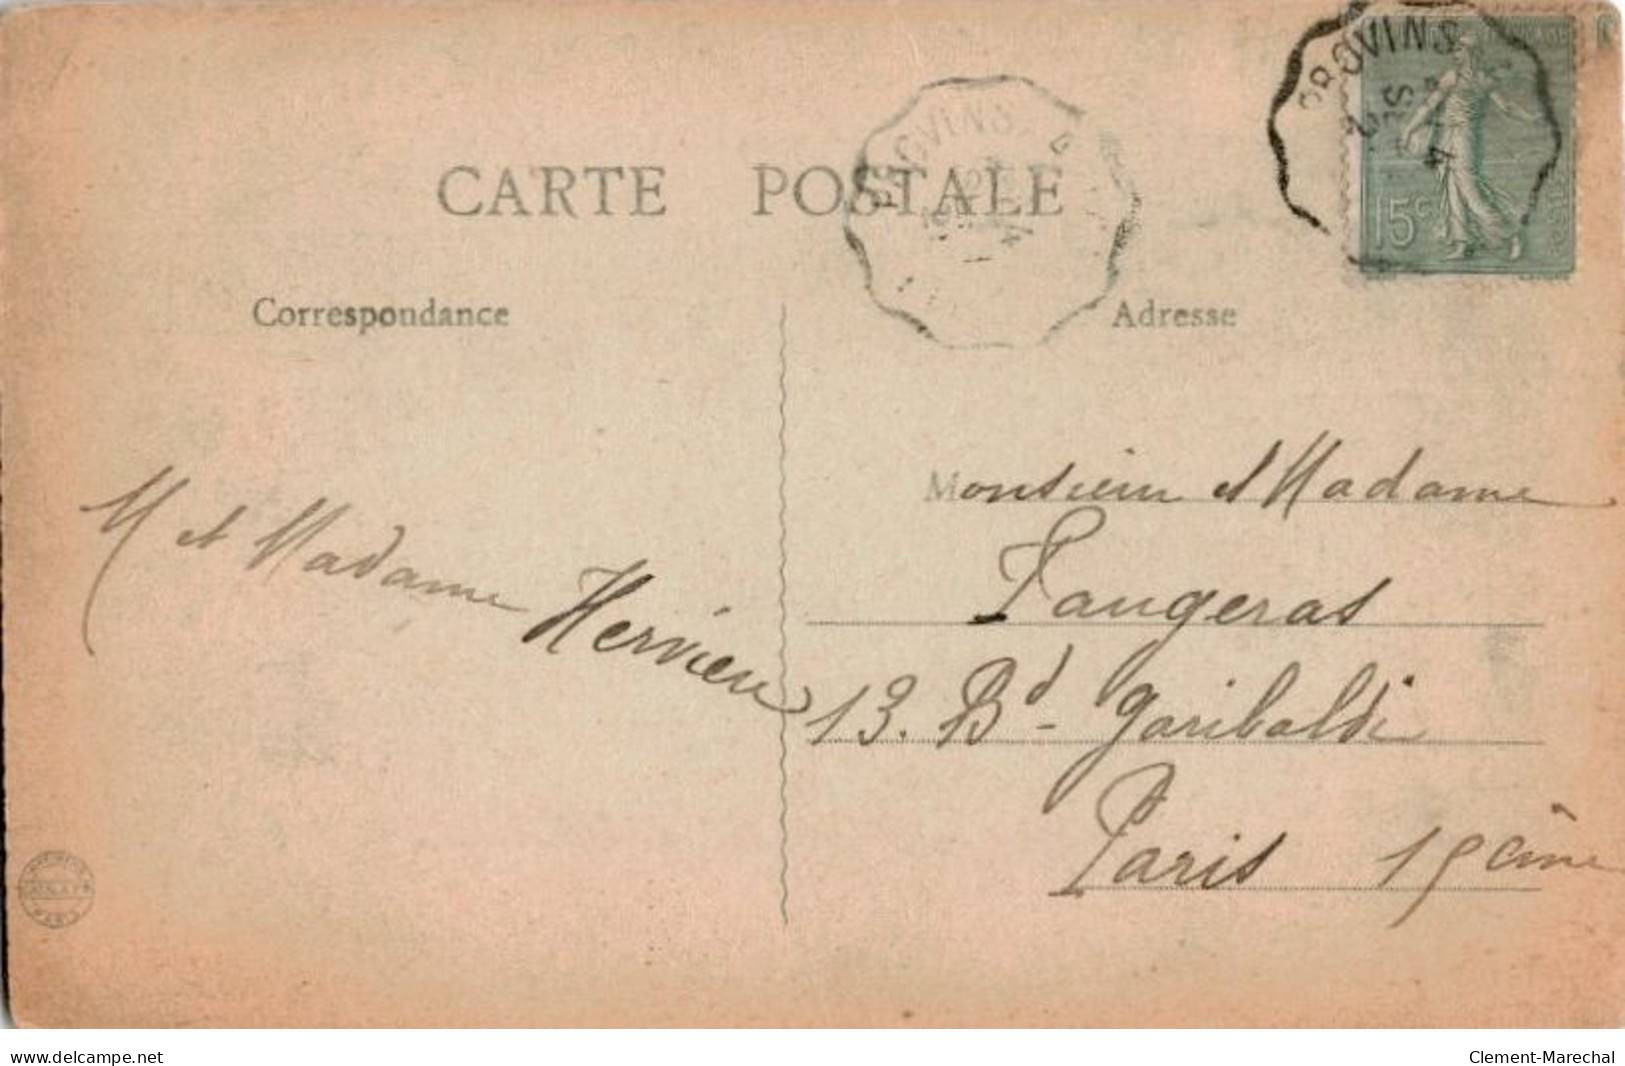 PROVINS
CARTE POSTALE
PROVINS
15c
Correspondance
Adresse
M et Madame Hervieu
Monsieur et Madame
Faugeras
13. Bd - Garibaldi
Paris 15ème
PARIS
delcampe.net
Clement-Marechal